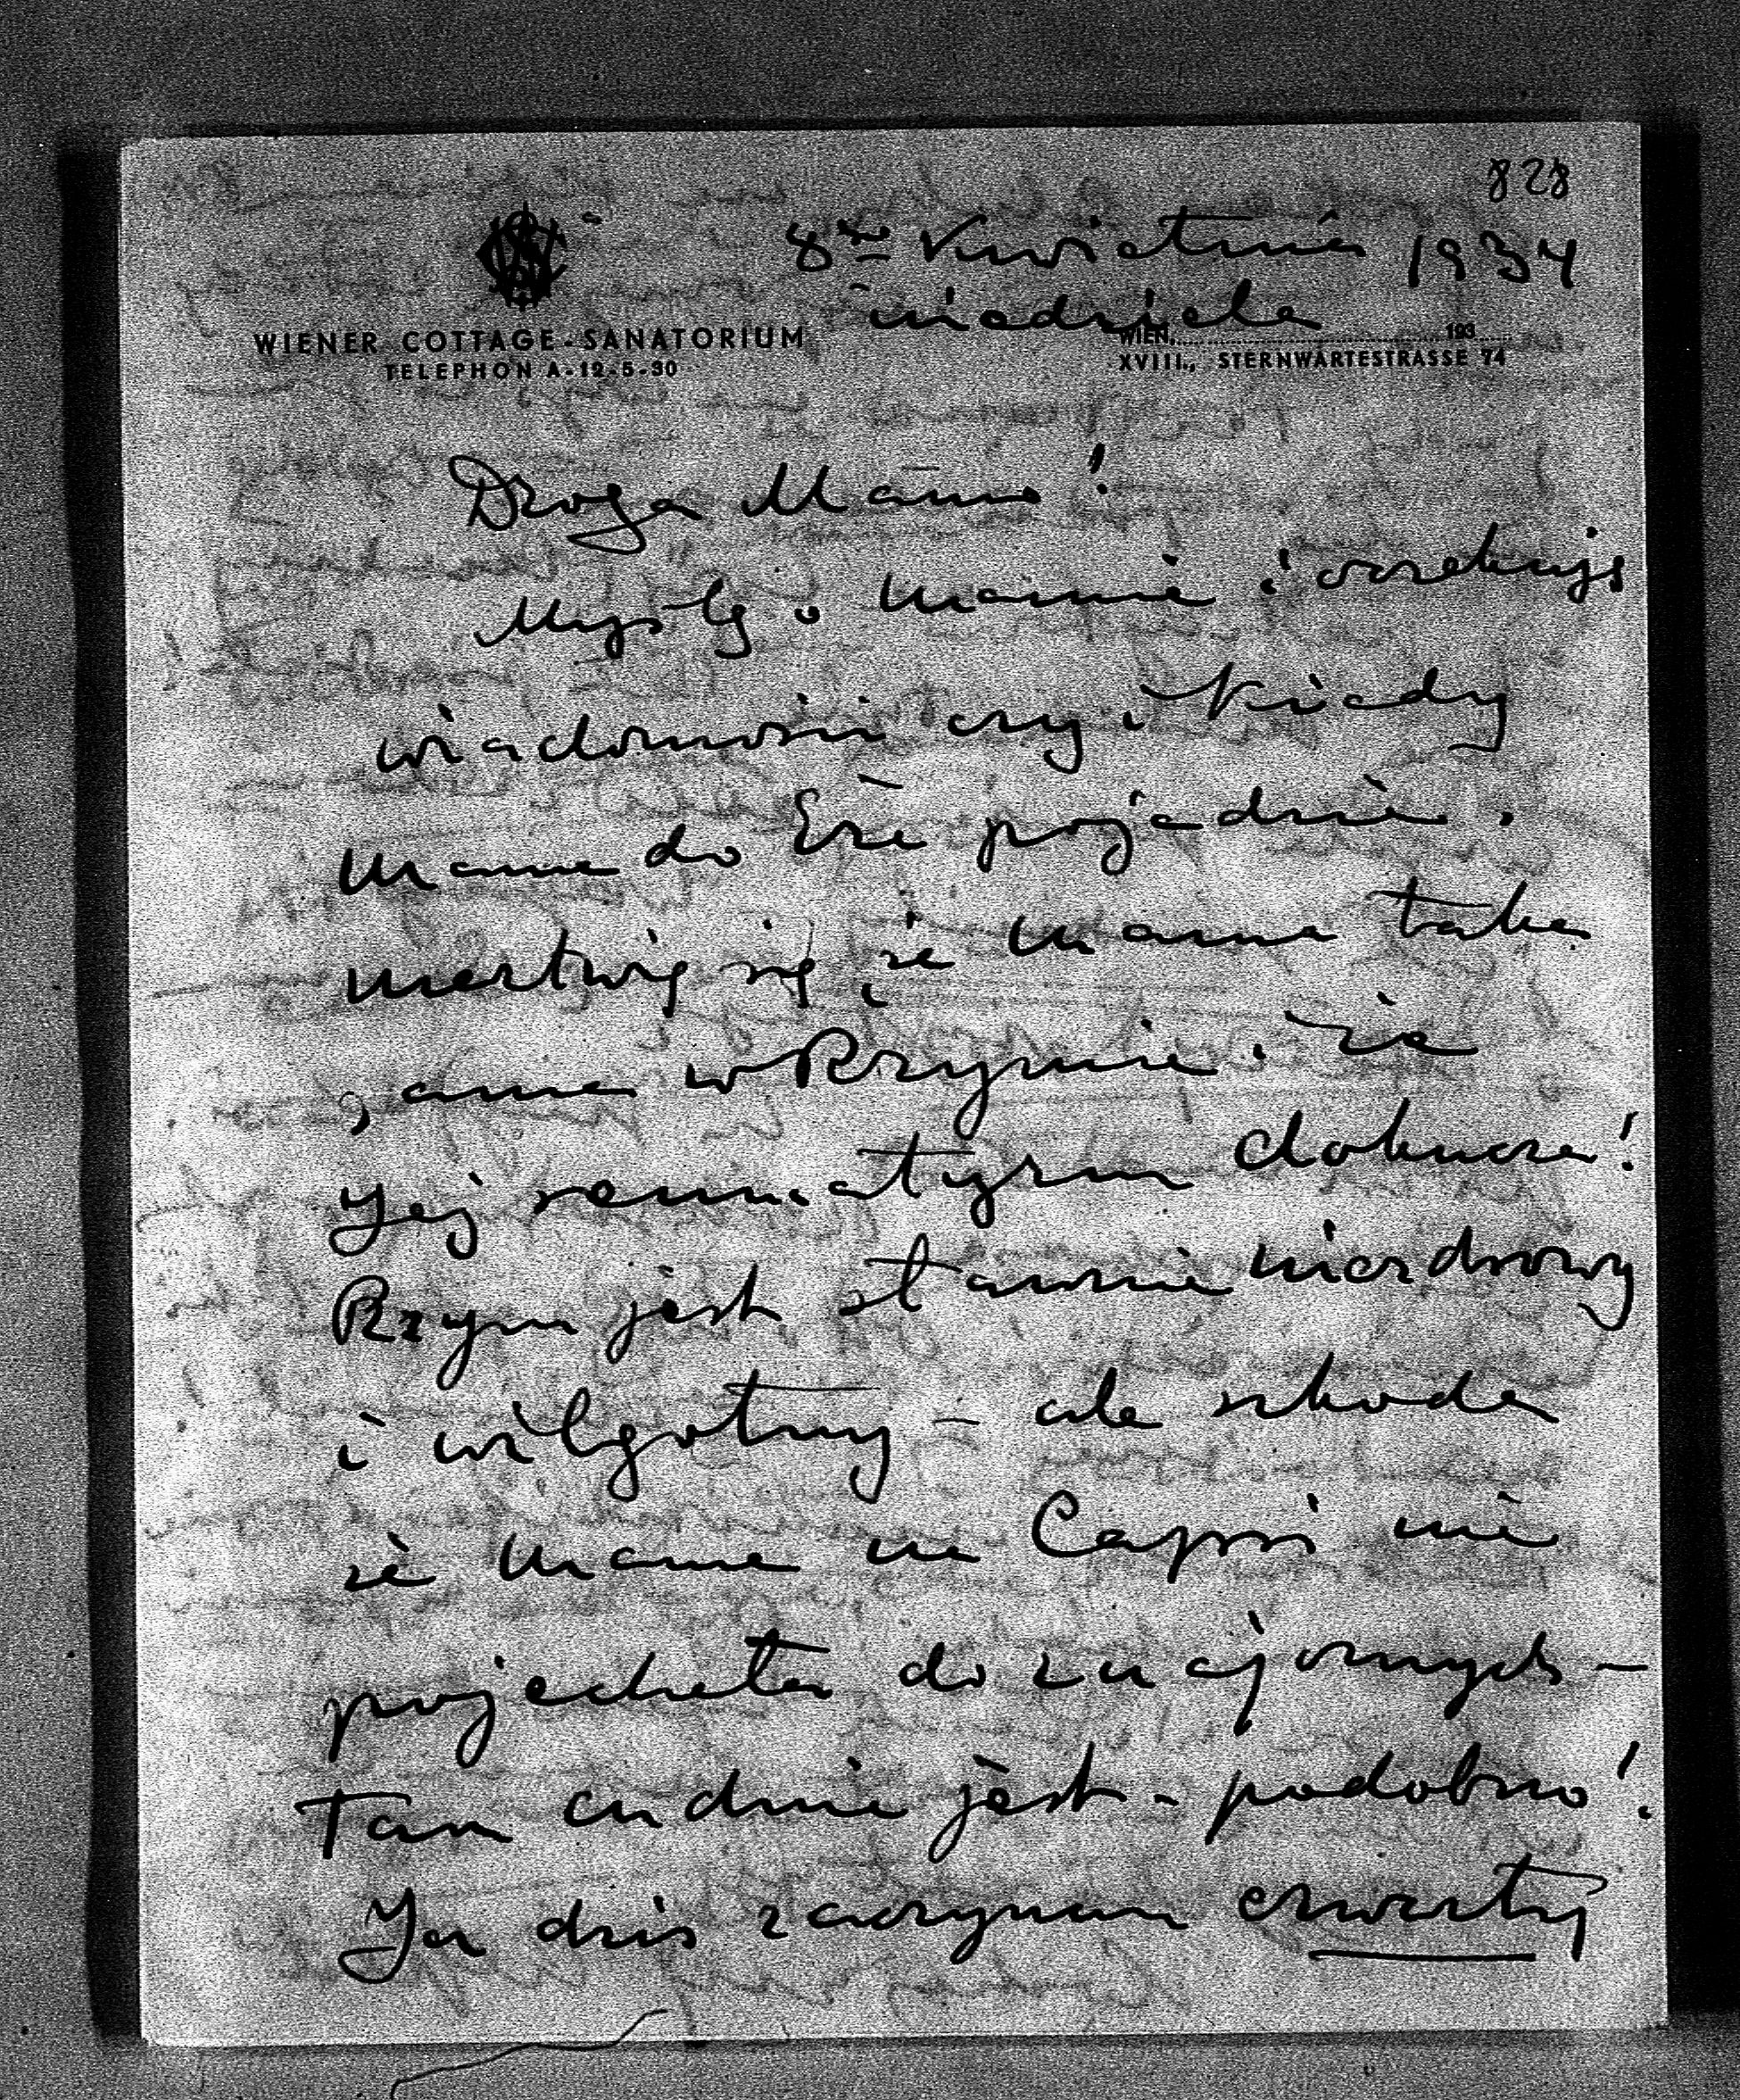 828
8go Kwietnia 1934
niedziela
WIENER COTTAGE-SANATORIUM
TELEPHON A-12-5-30
WIEN, 193
XVIII., STERNWARTESTRASSE 74
Droga Mamo!
Myślę o Mamie i oczekuję
wiadomości czy i kiedy
Mama do Èze pojedzie.
Martwię się, że Mama taka
sama w Rzymie i że
Jej reumatyzm dokucza!
Rzym jest strasznie niezdrowy
i wilgotny – ale szkoda
że Mama na Capri nie
pojechała do znajomych –
Tam cudnie jest – podobno!
Ja dziś zaczynam czwarty